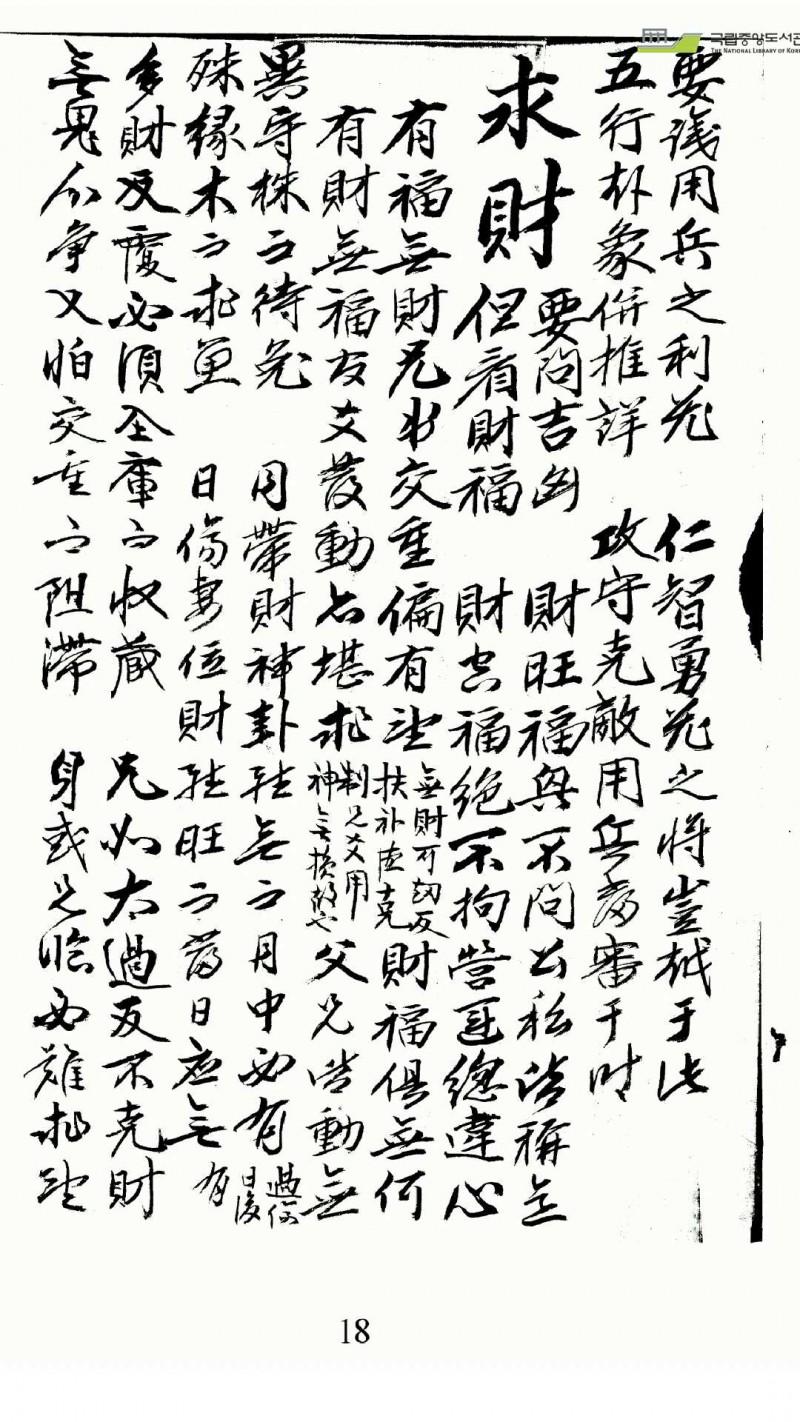 국립중앙도서관
THE NATIONAL LIBRARY OF KOREA
要識用兵之利 仁智勇之將豈越于此
五行卦象併推詳 攻守克敵用兵審于時
求財
要問吉凶 財旺福興不問公私皆稱
但看財福 財空福絕不拘營運總違心
有福無財兄弟交重偏有望 財福俱無何
無財可
扶
有財無福官父發動亦堪求 父兄皆動無
制兄爻用
神無
異守株而待兔 月帶財神卦雖無而月中必有
過
日後
殊緣木而求魚 日傷妻位財雖旺而當日應無
有
多財反覆必須全庫而收藏 兄如太過反不克財
無鬼分爭又怕交重而阻滯 身或兄臨必難求望
18